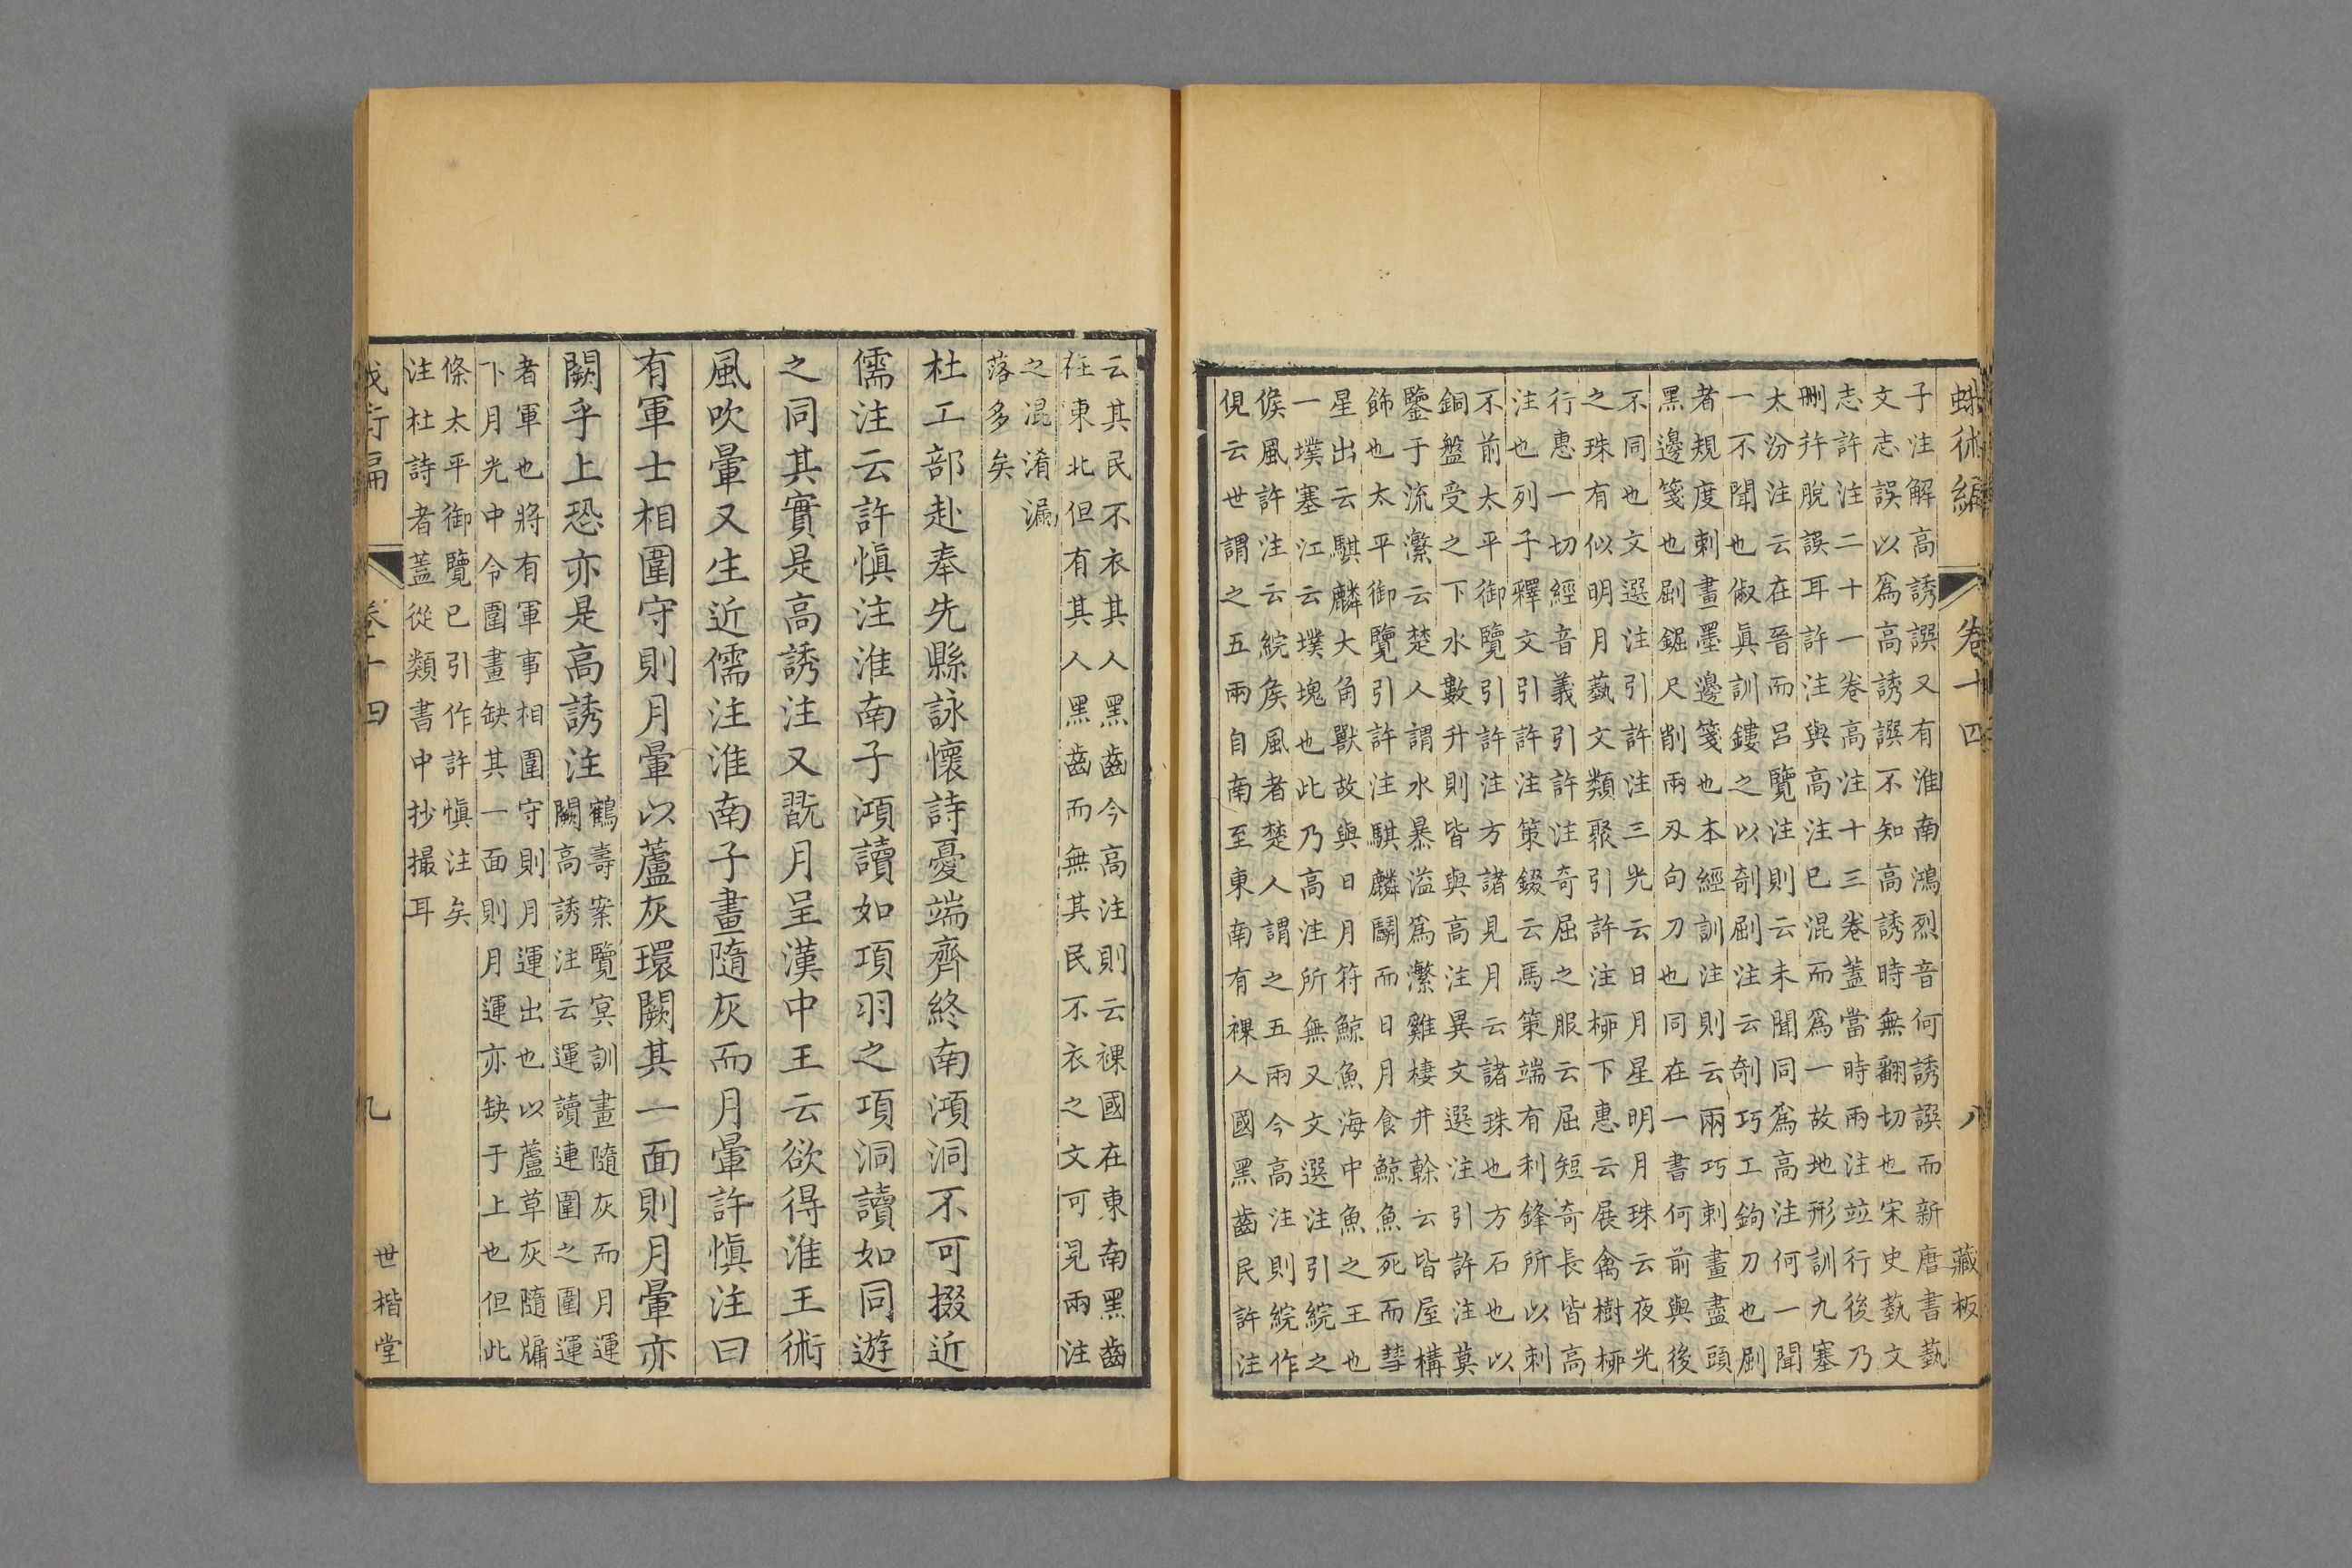 蛾術編 卷十四 八 藏板
子注解高誘譔又有淮南鴻烈音何誘譔而新唐書藝
文志誤以爲高誘譔不知高誘時無翻切也宋史藝文
志許注二十一卷高注十三卷蓋當時兩注竝行後乃
刪幷脫誤耳許注與高注已混而爲一故地形訓九塞
太汾注云在晉而呂覽注則云未聞同爲高注何一聞
一不聞也俶眞訓鏤之以剞劂注云剞巧工鉤刀也劂
者規度刺畫墨邊箋也本經訓注則云兩巧刺畫盡頭
黑邊箋也劂鋸尺削兩刃句刀也同在一書何前與後
不同也文選注引許注三光云日月星明月珠云夜光
之珠有似明月藝文類聚引許注柳下惠云展禽樹柳
行惠一切經音義引許注奇屈之服云屈短奇長皆高
注也列子釋文引許注策錣云馬策端有利鋒所以刺
不前太平御覽引許注方諸見月云諸珠也方石也以
銅盤受之下水數升則皆與高注異文選注引許注莫
鑒于流瀿云楚人謂水暴溢爲瀿雞棲井榦云皆屋構
飾也太平御覽引許注騏麟鬬而日月食鯨魚死而彗
星出云騏麟大角獸故與日月符鯨魚海中魚之王也
一墣塞江云墣塊也此乃高注所無又文選注引綄之
候風許注云綄矦風者楚人謂之五兩今高注則綄作
俔云世謂之五兩自南至東南有裸人國黑齒民許注
云其民不衣其人黑齒今高注則云裸國在東南黑齒
在東北但有其人黑齒而無其民不衣之文可見兩注
之混淆漏
落多矣
杜工部赴奉先縣詠懷詩憂端齊終南澒洞不可掇近
儒注云許愼注淮南子澒讀如項羽之項洞讀如同遊
之同其實是高誘注又翫月呈漢中王云欲得淮王術
風吹暈又生近儒注淮南子畫隨灰而月暈許愼注曰
有軍士相圍守則月暈以蘆灰環闕其一面則月暈亦
闕乎上恐亦是高誘注
鶴壽案覽冥訓畫隨灰而月運
闕高誘注云運讀連圍之圍運
者軍也將有軍事相圍守則月運出也以蘆草灰隨牖
下月光中令圍畫缺其一面則月運亦缺于上也但此
條太平御覽已引作許愼注矣
注杜詩者蓋從類書中抄撮耳
卷十四 九 世楷堂